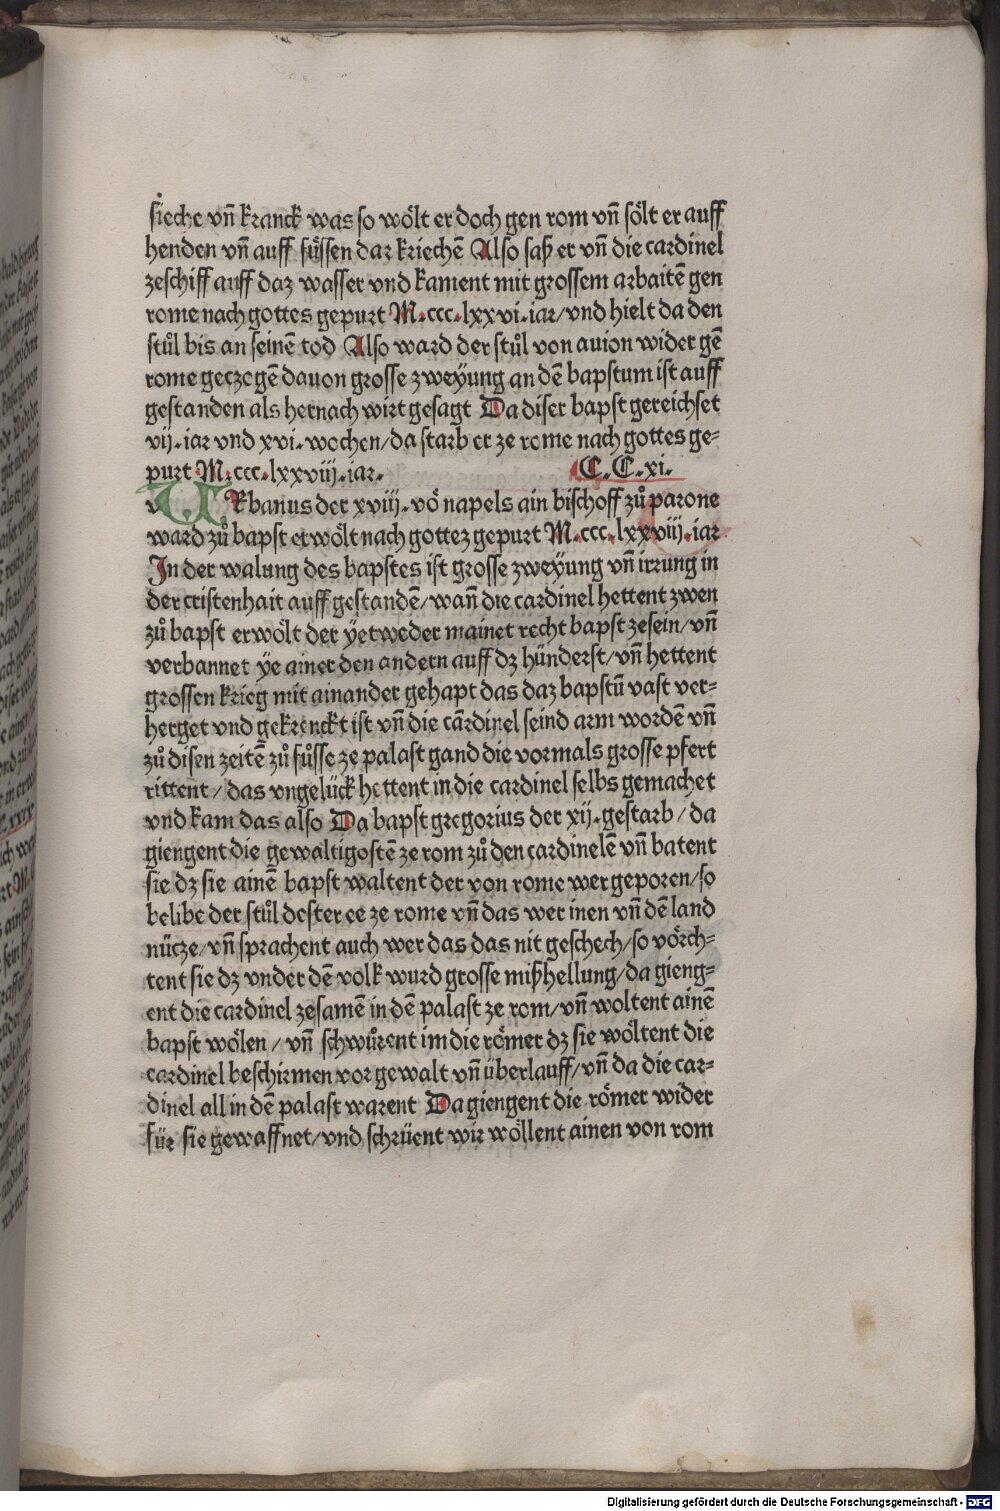 sieche vn̄ kranck was so wölt er doch gen rom vn̄ sölt er auff
henden vn̄ auff fuͤssen dar kriechē Also saß er vn̄ die cardinel
zeschiff auff daz wasser vnd kament mit grossem arbaitē gen
rome nach gottes gepurt M.ccc.lxxvi.iar/vnd hielt da den
stuͦl bis an seinē tod Also ward der stuͦl von auion wider gē
rome geczogē dauon grosse zweyung an dē bapstum ist auff
gestanden als hernach wirt gesagt Da diser bapst gereichset
vij.iar vnd xvi.wochen/da starb er ze rome nach gottes ge-
purt M.ccc.lxxviij.iar. C.C.xi.
VRbanus der xviij.vō napels ain bischoff zuͦ parone
ward zuͦ bapst erwölt nach gottez gepurt M.ccc.lxxviij.iar
In der walung des bapstes ist grosse zweyung vn̄ irrung in
der cristenhait auff gestandē/wan̄ die cardinel hettent zwen
zuͦ bapst erwölt der yetweder mainet recht bapst zesein/vn̄
verbannet ye ainer den andern auff dz hünderst/vn̄ hettent
grossen krieg mit ainander gehapt das daz bapstū vast ver-
herget vnd gekrenckt ist vn̄ die cardinel seind arm wordē vn̄
zuͦ disen zeitē zuͦ fuͤsse ze palast gand die vormals grosse pfert
rittent/das vngelück hettent in die cardinel selbs gemachet
vnd kam das also Da bapst gregorius der xij.gestarb/da
giengent die gewaltigostē ze rom zuͦ den cardinelē vn̄ batent
sie dz sie ainē bapst waltent der von rome wer geporen/so
belibe der stuͦl dester ee ze rome vn̄ das wer inen vn̄ dē land
nücze/vn̄ sprachent auch wer das das nit geschech/so vörch-
tent sie dz vnder dē volk wurd grosse mißhellung/da gieng-
ent die cardinel zesamē in dē palast ze rom/vn̄ woltent ainē
bapst wölen/vn̄ schwuͦrent im die römer dz sie wöltent die
cardinel beschirmen vor gewalt vn̄ überlauff/vn̄ da die car-
dinel all in dē palast warent Da giengent die römer wider
für sie gewaffnet/vnd schrüent wir wöllent ainen von rom
Digitalisierung gefördert durch die Deutsche Forschungsgemeinschaft - DFG